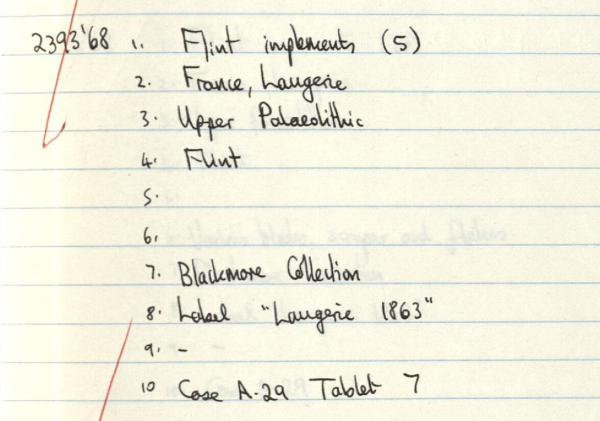 2393'68 1. Flint implements (5)
2. France, Laugerie
3. Upper Palaeolithic
4. Flint
5.
6.
7. Blackmore Collection
8. Label "Laugerie 1863"
9. -
10 Case A.29 Tablet 7